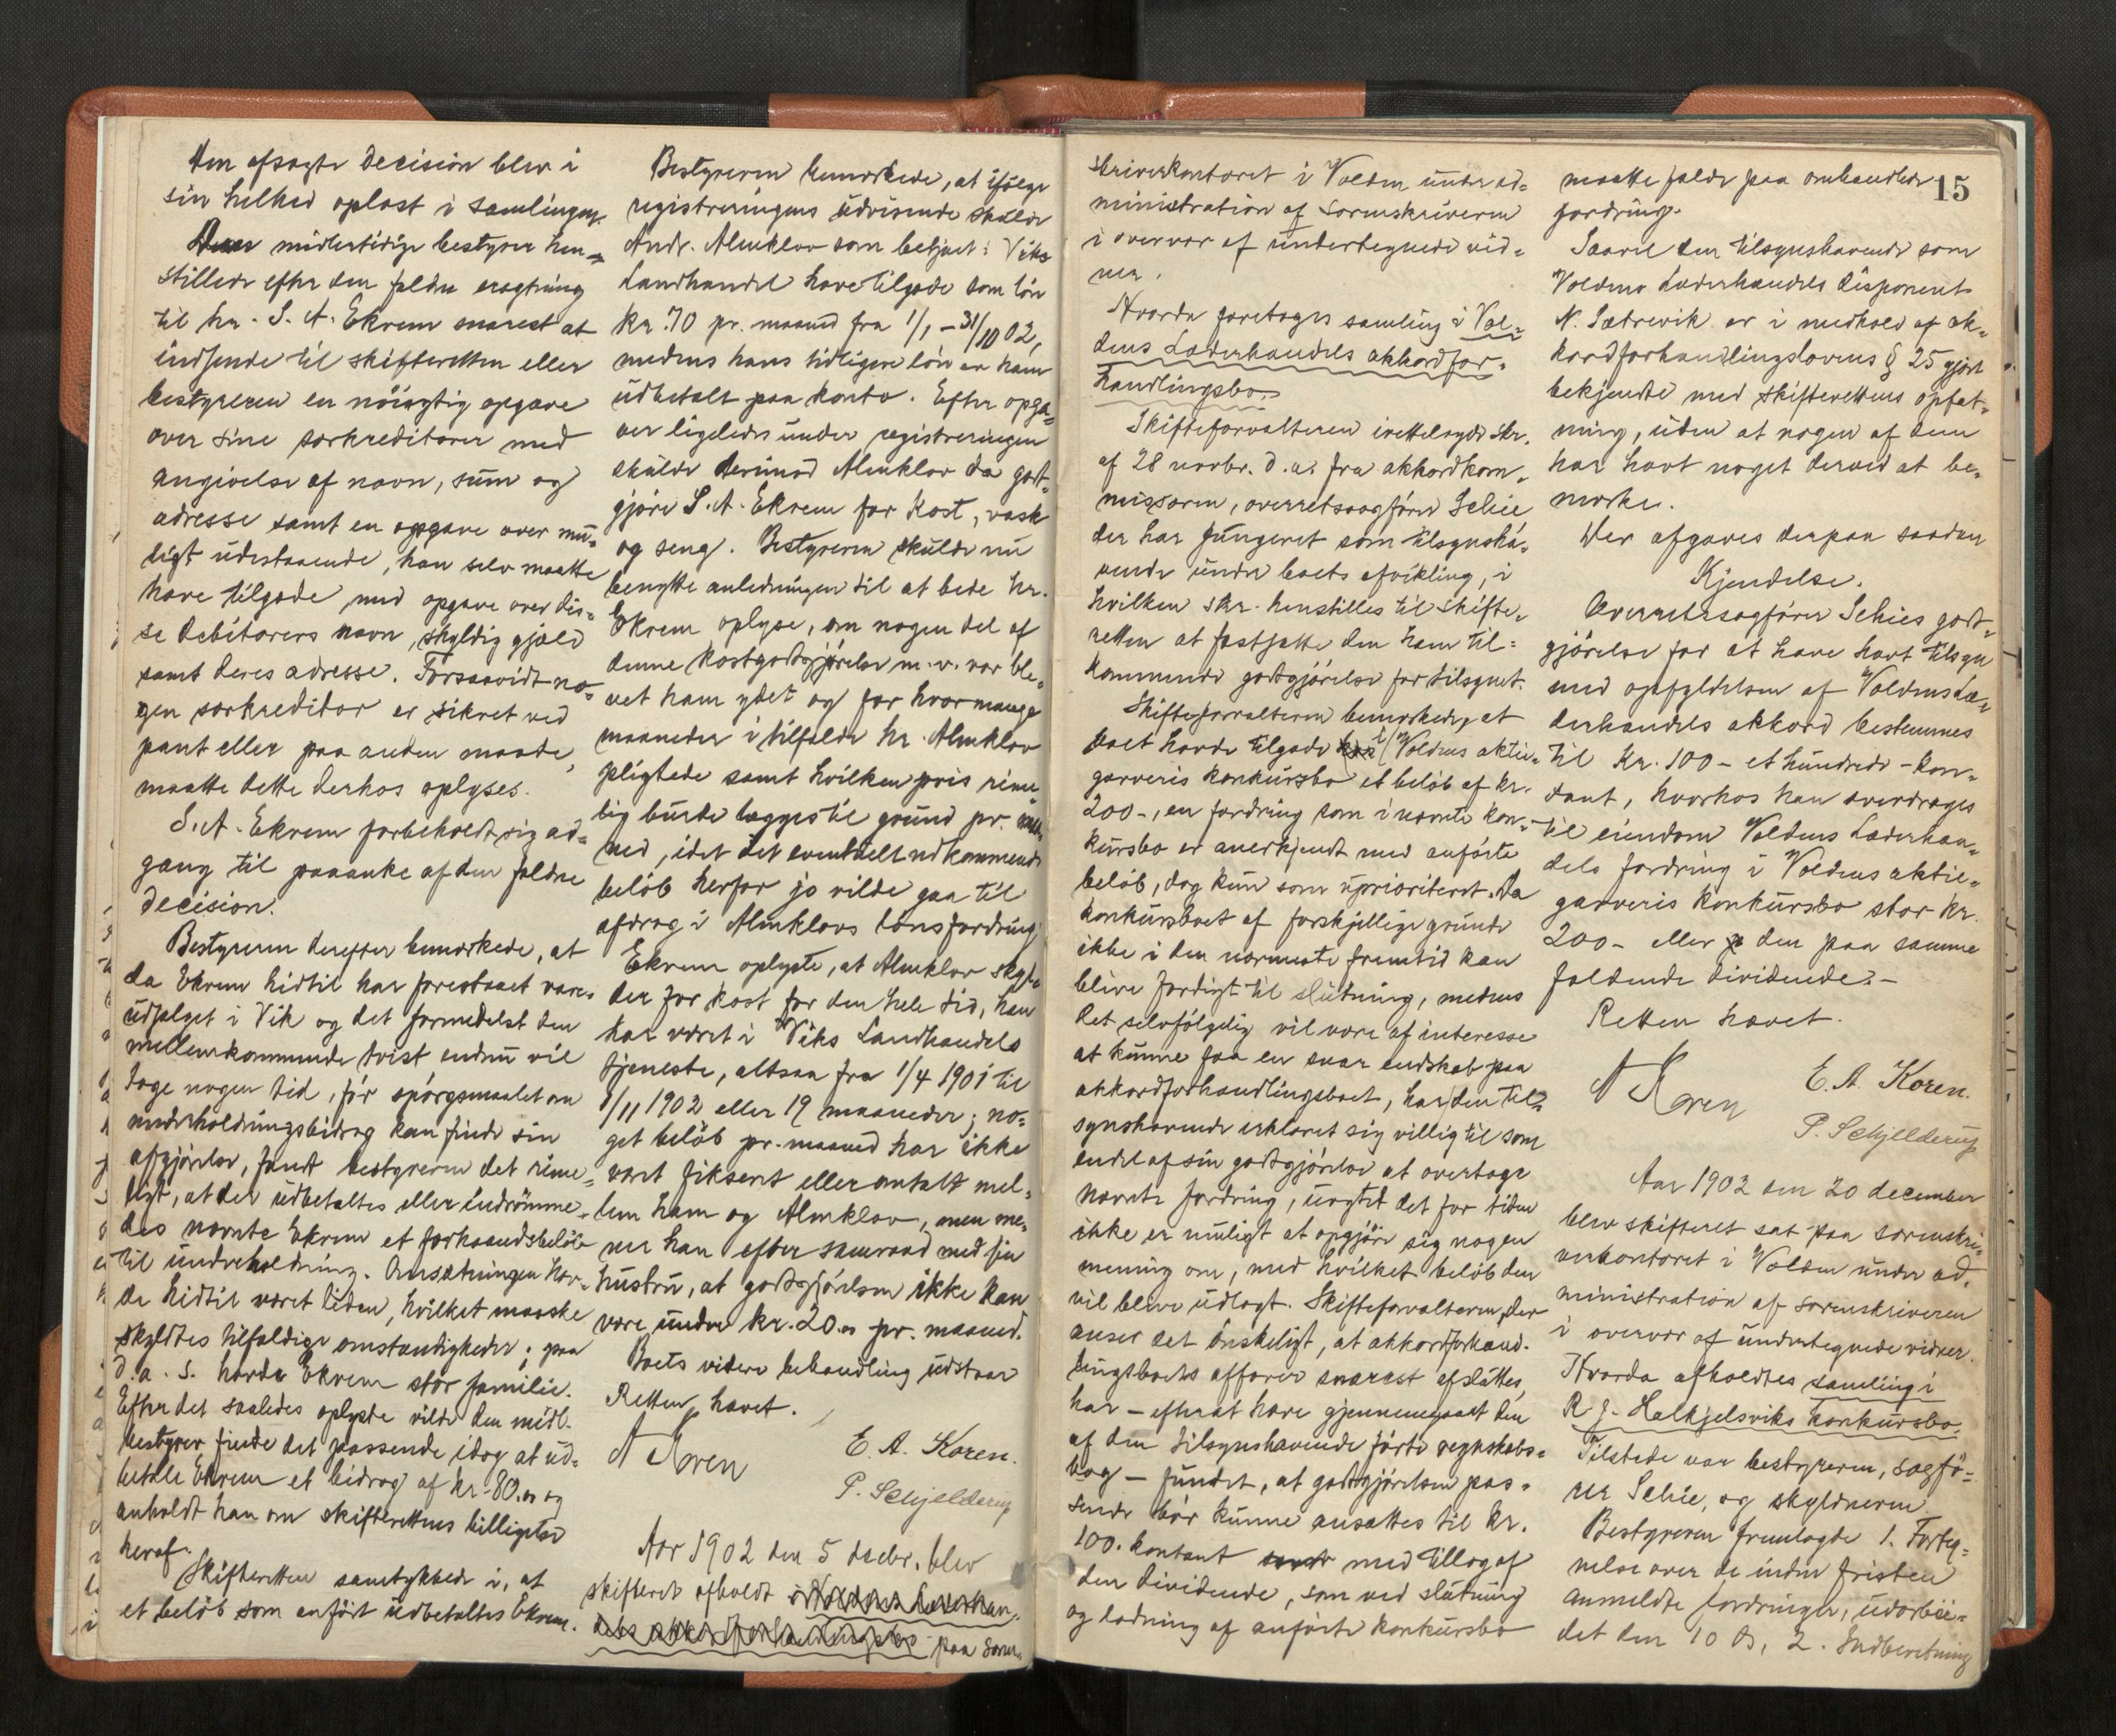 Den afsagte decision blev i
sin helhed oplæst i samlingen.
Den midlertidige bestyrer hen-
stillede efter den faldne eragtning
til hr. S. A. Ekrem snarest at
indsende til skifteretten eller
bestyreren en nöiagtig opgave
over sine særkreditorer med
angivelse af navn, sum og
adresse samt en opgave over mu-
ligt udestaaende, han selv maatte
have tilgode med opgave over dis-
se debitorers navn, skyldig gjæld
samt deres adresse. Forsaavidt no-
gen særkreditor er sikret ved
pant eller paa anden maade,
maatte dette derhos oplyses.
S. A. Ekrem forbeholdt sig ad-
gang til paaanke af den faldne
decision.
Bestyreren derefter bemærkede, at
da Ekrem hidtil har forestaaet vare-
udsalget i Vik og det formedelst den
mellemkommende tvist endnu vil
tage nogen tid, før spörgsmaalet om
underholdningsbidrag kan finde sin
afgjörelse, fandt bestyreren det rime-
ligt, at der udbetaltes eller indrömme-
des nævnte Ekrem et forhaandsbelöb
til underholdning. Omsætningen hav-
de hidtil været liden, hvilket maaske
skyldtes tilfældige omstændigheder; paa
d. a. s. havde Ekrem stor familie.
Efter det saaledes oplyste vilde den midl.
bestyrer finde det passende idag at ud-
betale Ekrem et bidrag af kr. 80.00 og
anholdt han om skifterettens billigelse
heraf.
Skifteretten samtykkede i, at
et belöb som anfört udbetaltes Ekrem.
Bestyreren bemærkede, at ifölge
registreringens udvisende skulde
Andr. Almklov som betjent i Viks
Landhandel have tilgode som lön
kr. 70 pr. maaned fra 1/1 – 31/10 02,
medens hans tidligere lön er ham
udbetalt paa konto. Efter opga-
ver ligeledes under registreringen
skulde derimod Almklov da godt-
gjöre S. A. Ekrem for Kost, vask
og seng. Bestyreren skulde nu
benytte anledningen til at bede hr.
Ekrem oplyse, om nogen del af
denne kostgodtgjörelse m. v. var ble-
vet ham ydet og for hvor mange
maaneder i tilfælde hr. Almklov
pligtede samt hvilken pris rime-
lig burde lægges til grund pr. maa-
ned, idet det eventuelt udkommende
belöb herfor jo vilde gaa til
afdrag i Almklovs lönsfordring.
Ekrem oplyste, at Almklov skyl-
der for kost for den hele tid, han
har været i Viks Landhandels
tjeneste, altsaa fra 1/4 1901 til
1/11 1902 eller 19 maaneder; no-
get belöb pr. maaned har ikke
været fikseret eller avtalt mel-
lem ham og Almklov, men me-
ner han efter samraad med sin
hustru, at godtgjörelsen ikke kan
være under kr. 20.00 pr. maaned.
Boets videre behandling udstaar
Retten hævet.
A Koren
E. A. Koren.
P. Schjelderup
Aar 1902 den 5 decbr. blev
skifteret afholdt i Voldens Læderhan-
dels akkordforhandlingsbo paa soren-
15
skriverkontoret i Volden under ad-
ministration af sorenskriveren
i overvær af undertegnede vid-
ner.
Hvorda foretoges samling i Vol-
dens Læderhandels akkordfor-
handlingsbo.
Skifteforvalteren irettelagde skr.
af 28 novbr. d. a. fra akkordkom-
missæren, overretssagförer Schie
der har fungeret som tilsynsha-
vende under boets afvikling, i
hvilken skr. henstilles til skifte-
retten at fastsætte den ham til-
kommende godtgjörelse for tilsynet.
Skifteforvalteren bemærkede, at
boet havde tilgode hos i Voldens aktie-
garveris konkursbo et belöb af kr.
200-, en fordring som i nævnte kon-
kursbo er anerkjendt med anförte
belöb, dog kun som uprioriteret. Da
konkursboet af forskjellige grunde
ikke i den nærmeste fremtid kan
blive færdigt til slutning, medens
det selvfölgelig vil være af interesse
at kunne faa en snar endskab paa
akkordforhandlingsboet, har den til-
synshavende erklæret sig villig til som
endel af sin godtgjörelse at overtage
nævnte fordring, uagtet det for tiden
ikke er muligt at opgjöre sig nogen
mening om, med hvilket belöb den
vil blive udlagt. Skifteforvalteren, der
anser det önskeligt, at akkordforhand-
lingsboets affærer snarest afsluttes,
har – efterat have gjennemgaaet den
af den tilsynshavende förte regnskabs-
bog – fundet, at godtgjörelsen pas-
sende bör kunne ansættes til kr.
100. kontant samt med tillæg af
den dividende, som ved slutning
og lodning af anförte konkursbo
maatte falde paa omhandlede
fordring.
Saavel den tilsynshavende som
Voldens Læderhandels disponent
N. Sætrevik er i medhold af ak-
kordforhandlingslovens § 25 gjort
bekjendte med skifterettens opfat-
ning, uden at nogen af dem
har havt noget derved at be-
mærke.
Der afgaves derpaa saadan
Kjendelse.
Overretssagförer Schies godt-
gjörelse for at have havt tilsyn
med opfyldelsen af Voldens Læ-
derhandels akkord bestemmes
til Kr. 100 – et hundrede – kon-
tant, hvorhos han overdrages
til eiendom Voldens Læderhan-
dels fordring i Voldens aktie-
garveris konkursbo stor kr.
200 – eller den paa samme
faldende dividende. –
Retten hævet.
A Koren
E. A. Koren.
P. Schjelderup
Aar 1902 den 20 december
blev skifteret sat paa sorenskri-
verkontoret i Volden under ad-
ministration af sorenskriveren
i overvær af undertegnede vidner.
Hvorda afholdtes samling i
R. J. Halkjelsviks konkursbo.
Tilstede var bestyreren, sagfö-
rer Schie, og skyldneren.
Bestyreren fremlagde 1. Forteg-
nelse over de inden fristen
anmeldte fordringer, udarbei-
det den 10 ds, 2. Indberetning